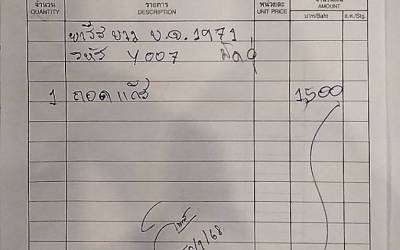 จำนวน รายการ หน่วยละ จำนวนเงิน
QUANTITY DESCRIPTION UNIT PRICE AMOUNT
บาท/Baht ส.ต./Stg.
ขาว บ.ฉ.1971
รหัส Y007
1 ถอดแก๊ส 1,500
/9/68